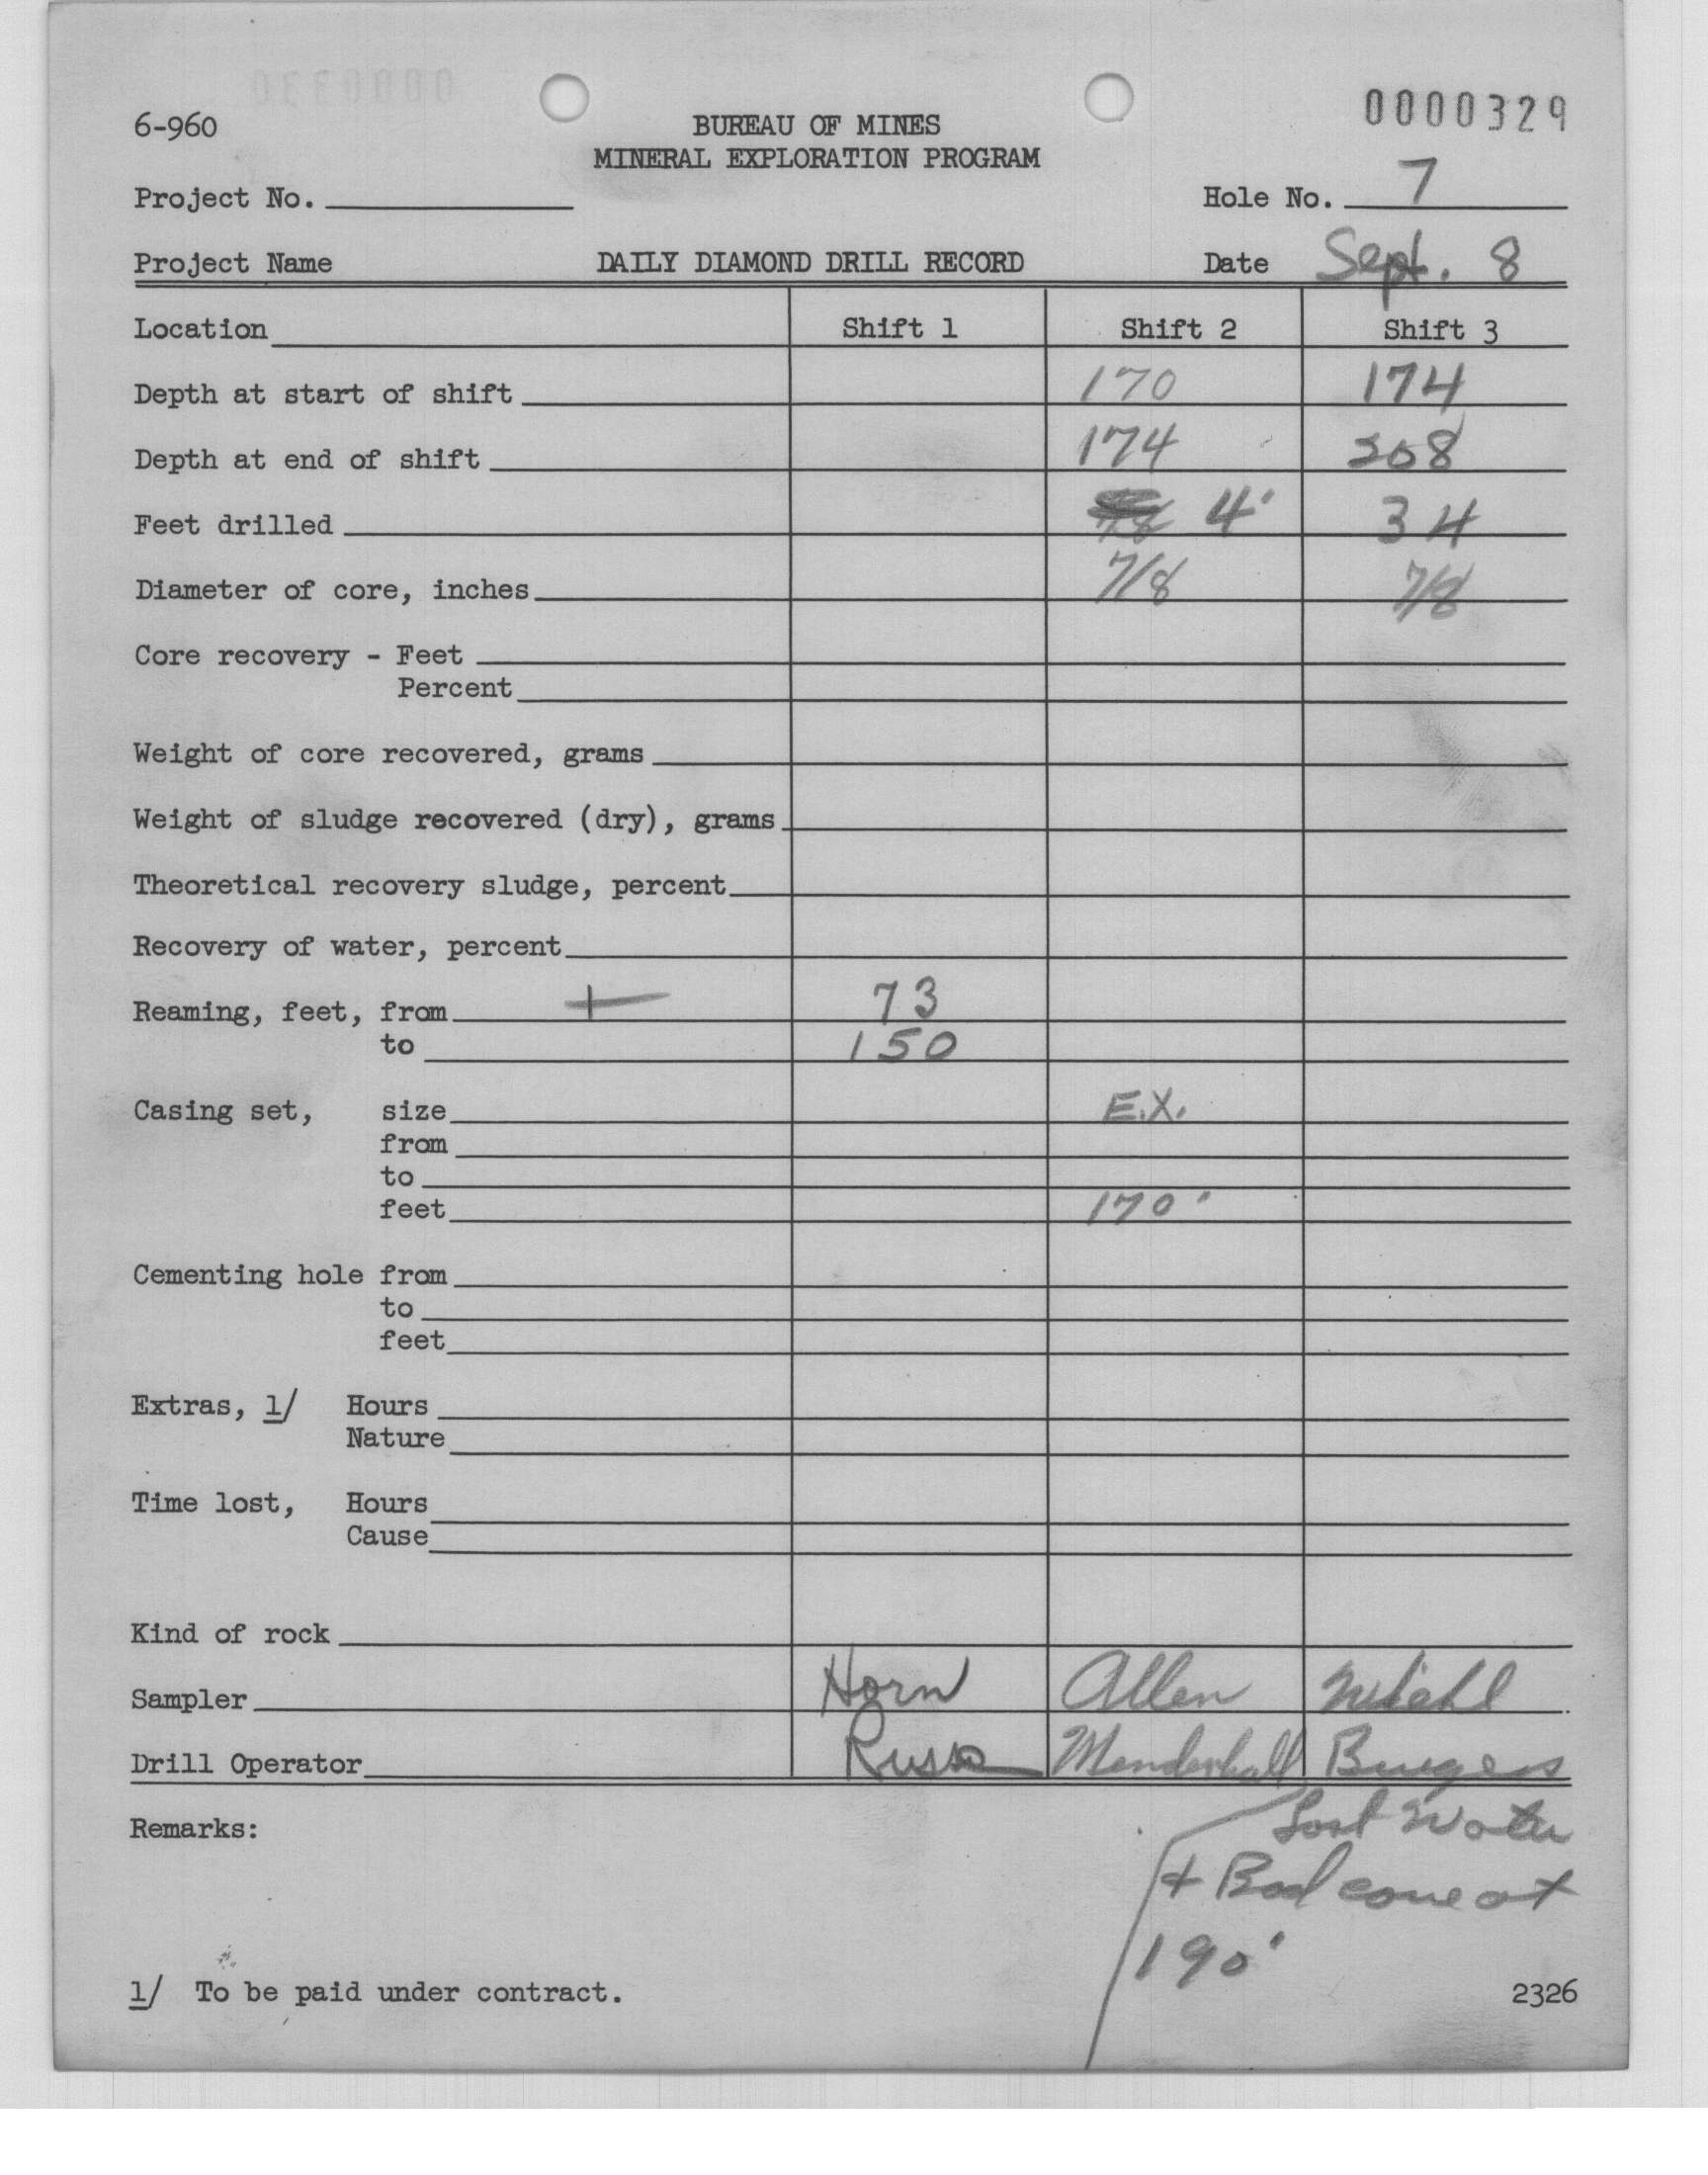 0000329
6-960
BUREAU OF MINES
MINERAL EXPLORATION PROGRAM
Project No.
Hole No. 7
Project Name DAILY DIAMOND DRILL RECORD Date Sept. 8
Location Shift 1 Shift 2 Shift 3
Depth at start of shift 170 174
Depth at end of shift 174 208
Feet drilled 4' 34
Diameter of core, inches 7/8 7/8
Core recovery - Feet
Percent
Weight of core recovered, grams
Weight of sludge recovered (dry), grams
Theoretical recovery sludge, percent
Recovery of water, percent
Reaming, feet, from 73
to 150
Casing set, size E.X.
from
to
feet 170'
Cementing hole from
to
feet
Extras, 1/ Hours
Nature
Time lost, Hours
Cause
Kind of rock
Sampler Horn Allen
Drill Operator Russo Mendenhall Burgess
Remarks: Lost Water
+ Bad cave at
190'
1/ To be paid under contract.
2326